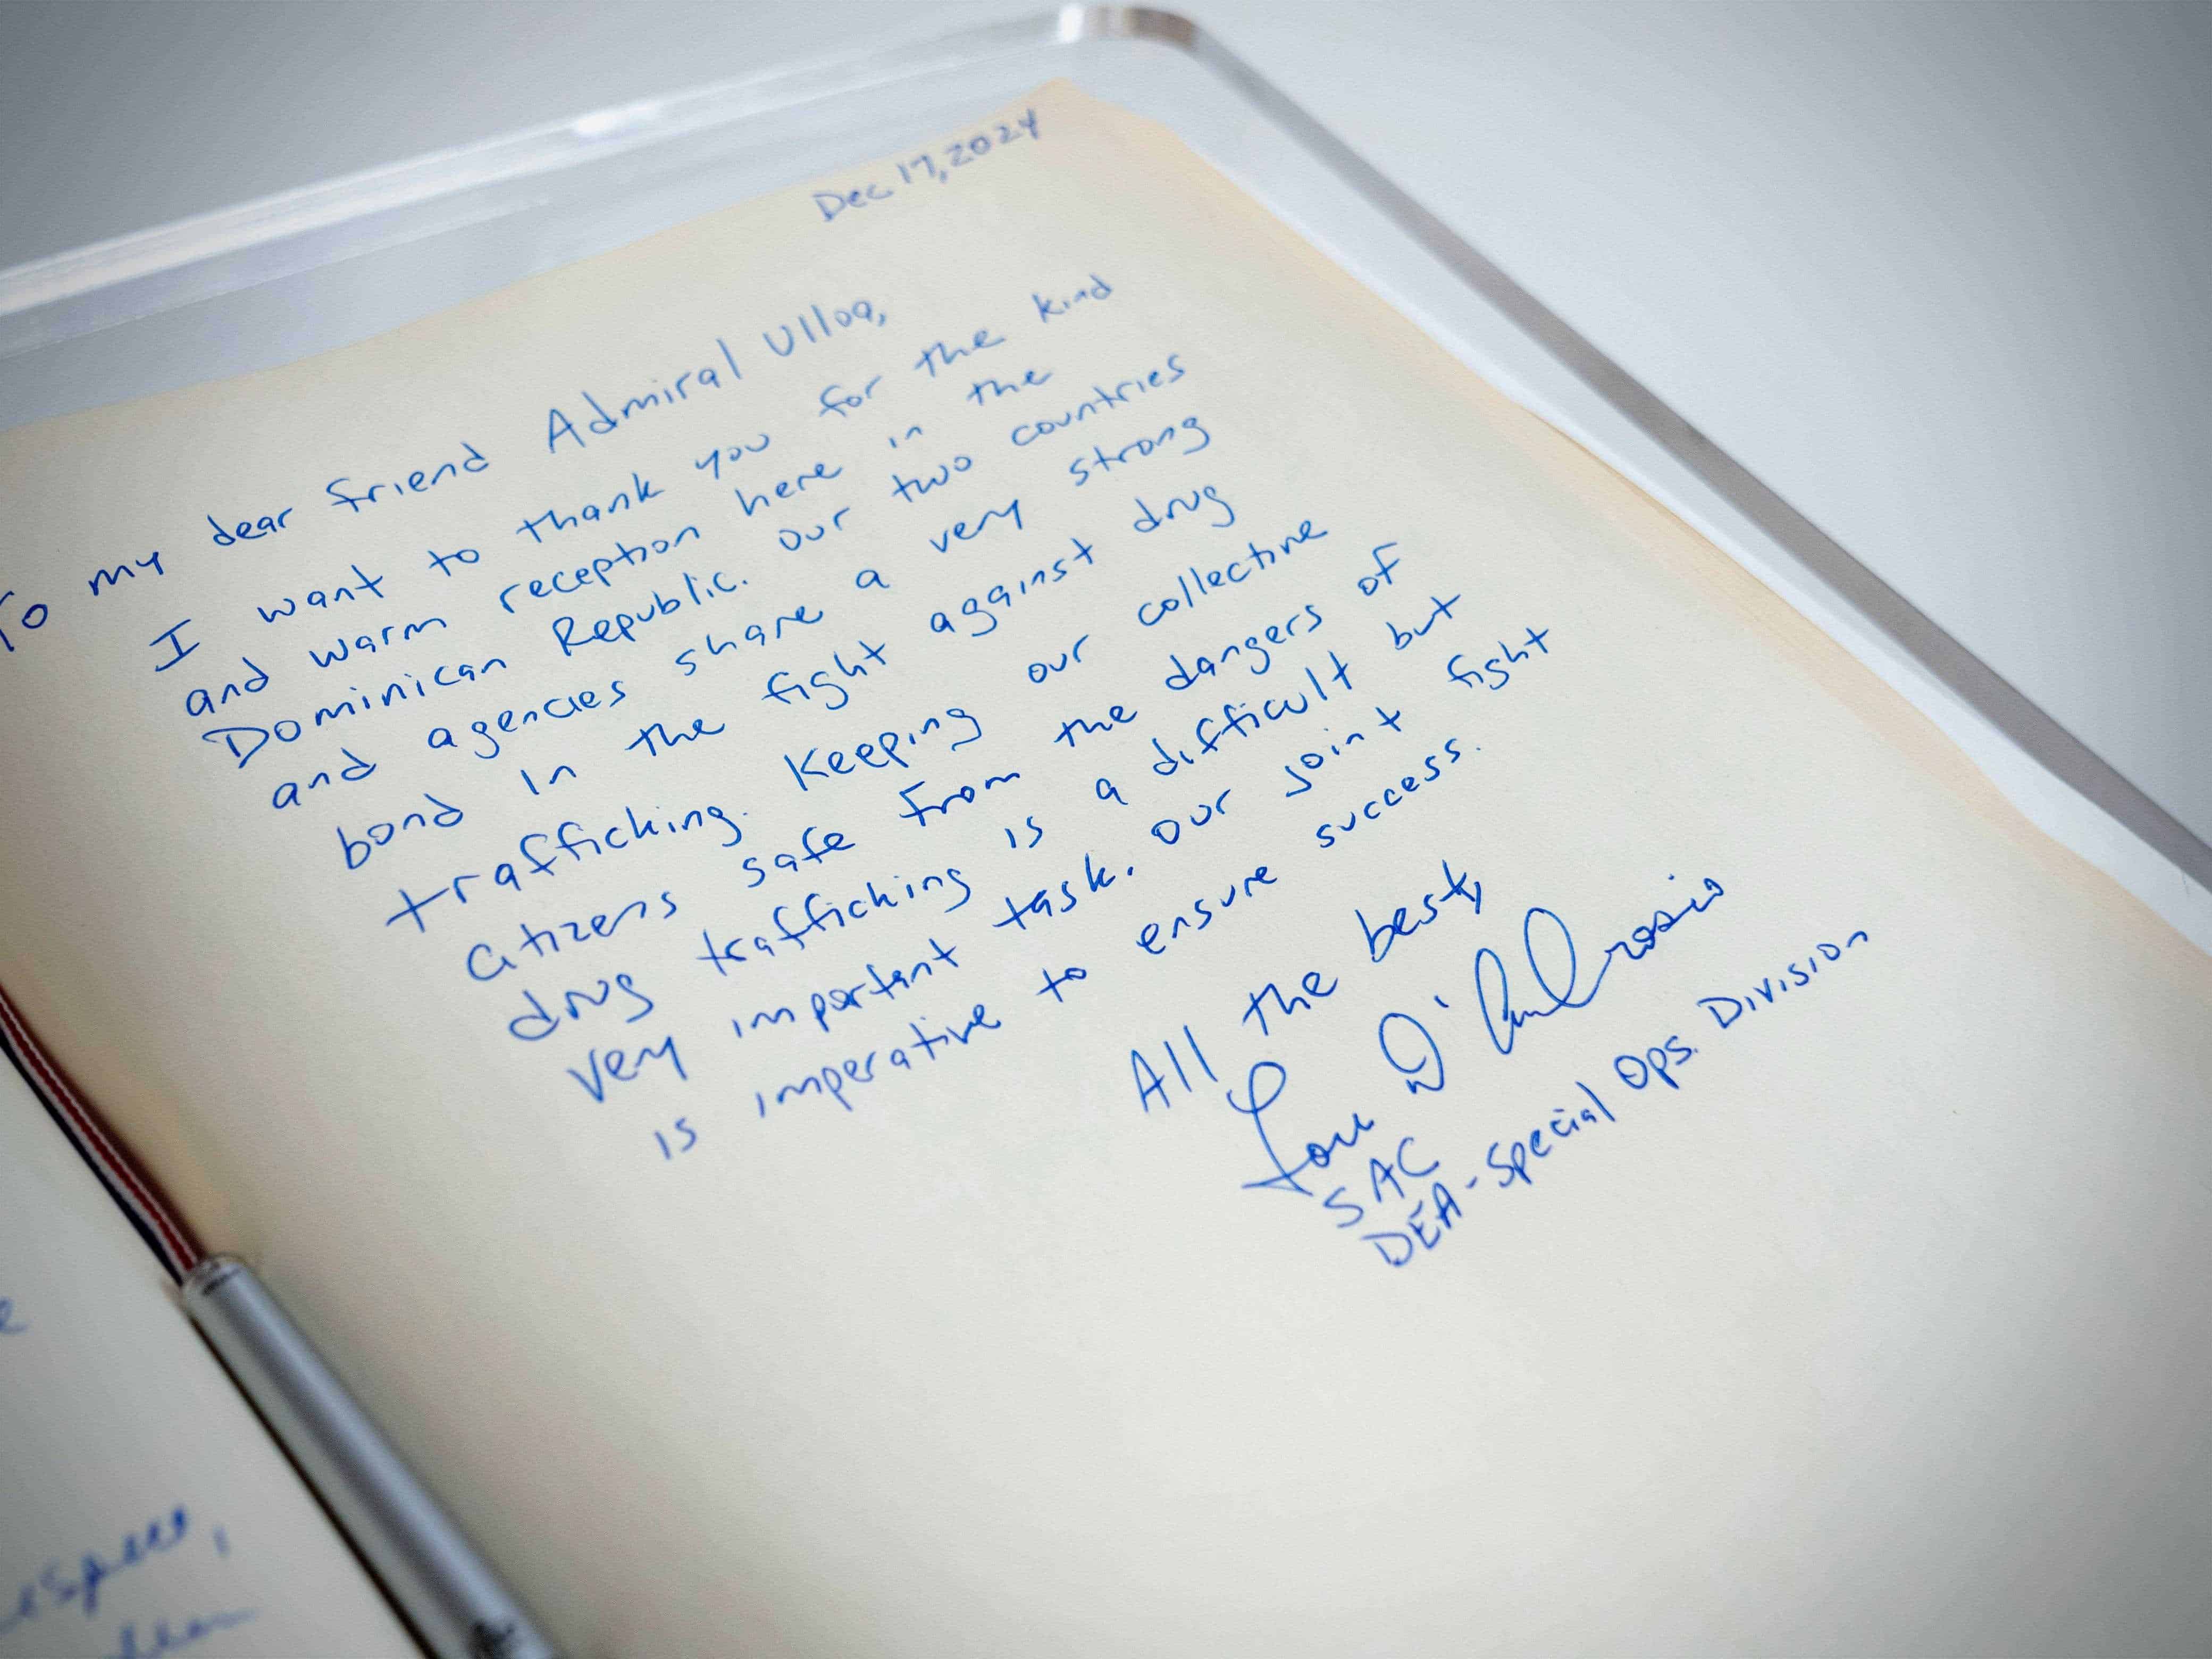 Dec 17, 2024
To my dear friend Admiral Ulloa,
I want to thank you for the kind
and warm reception here in the
Dominican Republic. Our two countries
and agencies share a very strong
bond in the fight against drug
trafficking. Keeping our collective
citizens safe from the dangers of
drug trafficking is a difficult but
very important task. Our joint fight
is imperative to ensure success.
All the best,
Lou D'Ambrosio
SAC
DEA - Special Ops. Division